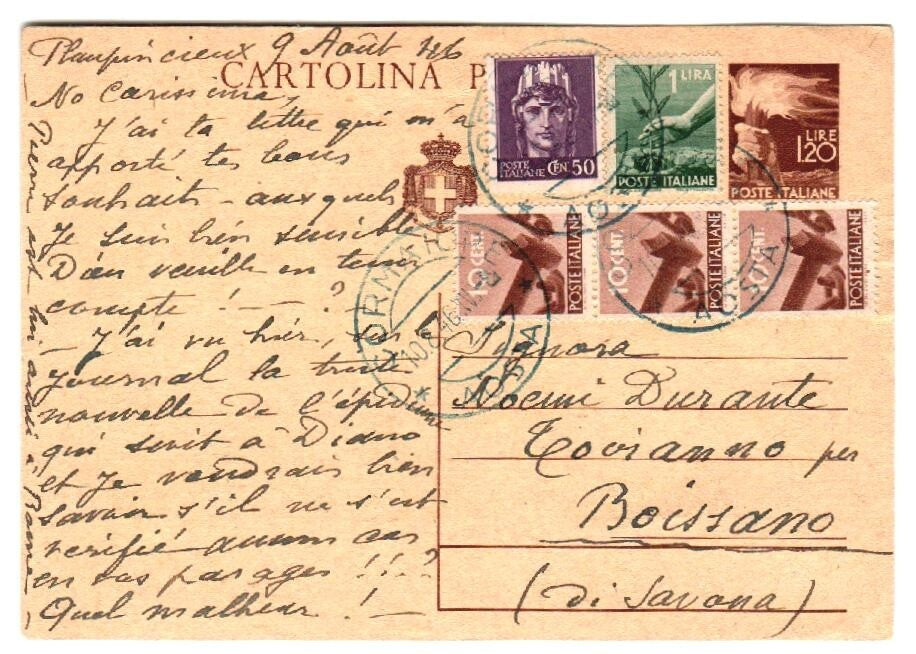 Planpincieux 9 Août 46
CARTOLINA P
No Carissima,
J'ai ta lettre qui m'a
apporté tes bons
souhaits - auxquels
Je suis bien sensible
Dieu veuille en tenir
compte ! — ?
— J'ai vu hier, sur le
journal la triste
nouvelle de l'épidémie
qui sevit à Diano
et je voudrais bien
savoir s'il ne s'est
verifié aucun cas
en vos parages !!! ?
Quel malheur ! —
est à Rome
POSTE ITALIANE CEN. 50
1 LIRA
POSTE ITALIANE
LIRE 1,20
POSTE ITALIANE
10 CENT. POSTE ITALIANE
10 CENT. POSTE ITALIANE
10 CENT. POSTE ITALIANE
AOSTA
AOSTA
Signora
Noemi Durante
Toirano per
Boissano
(di Savona)